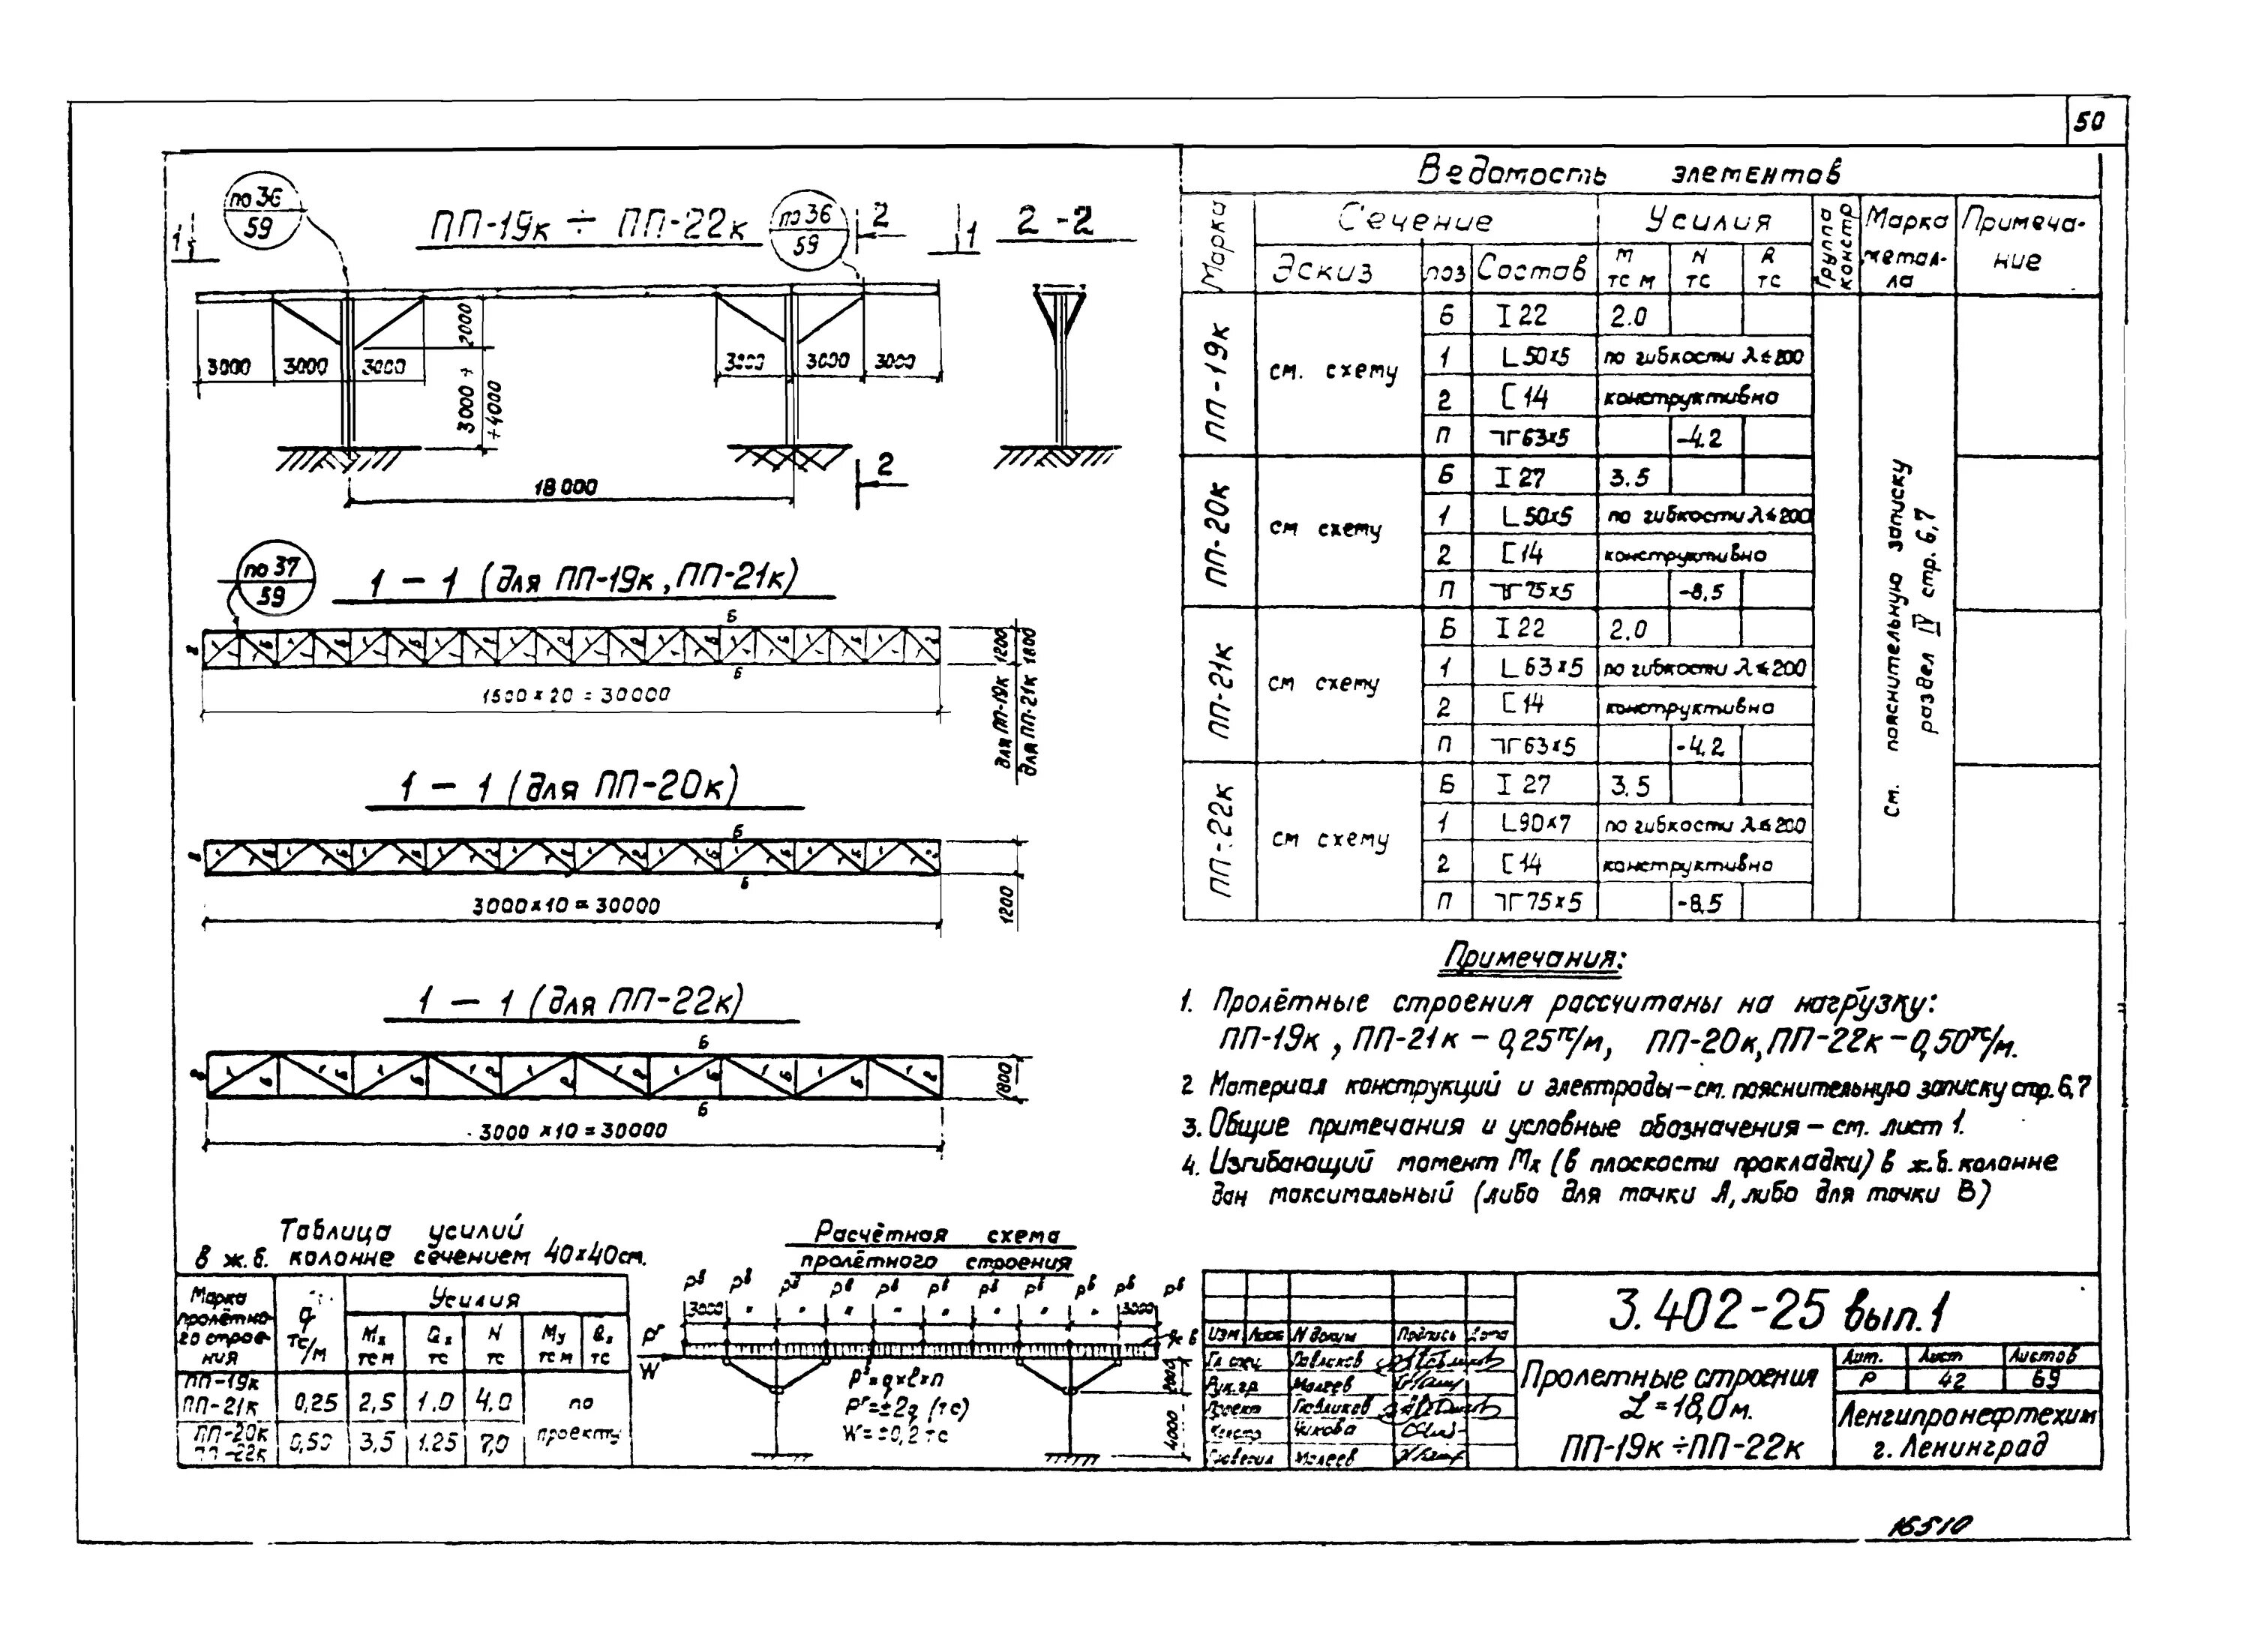 50
по 36
59
ПП-19к ÷ ПП-22к
по 36
59
2
1
1
2 - 2
3000
3000
3000
2000
3000 ÷
÷4000
3000
3000
3000
18 000
2
по 37
59
1 - 1 (для ПП-19к, ПП-21к)
Б
2
Б
1500 x 20 = 30000
1200
1800
для ПП-19к
для ПП-21к
1 - 1 (для ПП-20к)
Б
Б
3000 x 10 = 30000
1200
1 - 1 (для ПП-22к)
Б
Б
3000 x 10 = 30000
1800
Ведомость элементов
Марка
Сечение
Усилия
Группа констр
Марка метал-ла
Примеча-ние
Эскиз
поз
Состав
M тс м
N тс
R тс
ПП-19к
см. схему
Б I 22 2.0
1 L 50x5 по гибкости λ≤200
2 [ 14 конструктивно
П ⅂Γ 63x5 -4.2
ПП-20к
см схему
Б I 27 3.5
1 L 50x5 по гибкости λ≤200
2 [ 14 конструктивно
П ⅂Γ 75x5 -8,5
ПП-21к
см схему
Б I 22 2.0
1 L 63x5 по гибкости λ≤200
2 [ 14 конструктивно
П ⅂Γ 63x5 -4.2
ПП-22к
см схему
Б I 27 3.5
1 L 90x7 по гибкости λ≤200
2 [ 14 конструктивно
П ⅂Γ 75x5 -8,5
см. пояснительную записку
раздел IV стр. 6,7
Примечания:
1. Пролётные строения рассчитаны на нагрузку:
ПП-19к, ПП-21к - 0,25тс/м, ПП-20к, ПП-22к - 0,50тс/м.
2 Материал конструкций и электроды - см. пояснительную записку стр. 6,7
3. Общие примечания и условные обозначения - см. лист 1.
4. Изгибающий момент Mx (в плоскости прокладки) в ж.б. колонне
дан максимальный (либо для точки А, либо для точки В)
Таблица усилий
в ж.б. колонне сечением 40x40см.
Марка пролётно-го строе-ния
q тс/м
Усилия
Mx тс м
Qx тс
N тс
My тс м
тс
ПП-19к
ПП-21к 0,25 2,5 1.0 4.0
ПП-20к
ПП-22к 0,50 3,5 1.25 7,0
по проекту
Расчётная схема
пролётного строения
Pв Pв Pв Pв Pв Pв Pв Pв Pв Pв Pв
3000 3000
Pг
W
Pв=q×ℓ×n
Pг=±2q (тс)
W=±0,2 тс
2000
4000
Изм Лист N докум Подпись Дата
Гл спец Павликов
Рук.гр Малеев
Проект Павликов
Констр Чижова
Проверил Малеев
3.402-25 вып.1
Пролетные строения
L = 18,0 м.
ПП-19к ÷ ПП-22к
Лит. Лист Листов
Р 42 69
Ленгипронефтехим
г. Ленинград
16510